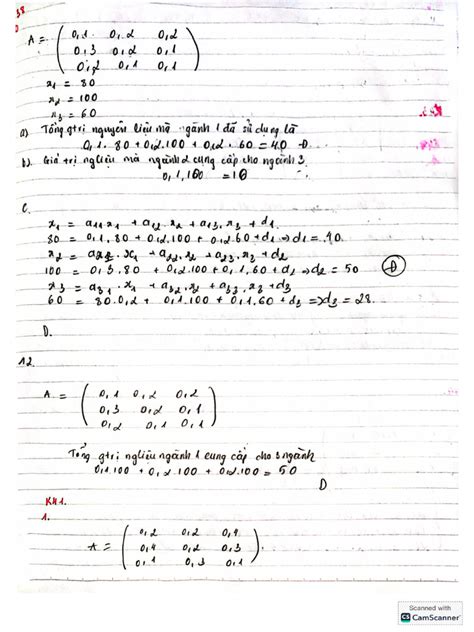 38
A = ( 0,1 0,2 0,2
0,3 0,2 0,1
0,2 0,1 0,1 )
x1 = 80
x2 = 100
x3 = 60
a) Tổng gtri nguyên liệu mà ngành 1 đã sử dụng là
0,1 . 80 + 0,2 . 100 + 0,2 . 60 = 40
b) Giá trị ngliệu mà ngành 2 cung cấp cho ngành 3
0,1.100 = 10
C.
x1 = a11 x1 + a12 . x2 + a13 . x3 + d1
80 = 0,1.80 + 0,2.100 + 0,2.60 + d1 => d1 = 40
x2 = . x1 + a22 . x2 + a23 . x3 + d2
100 = 0,3.80 + 0,2.100 + 0,1.60 + d2 => d2 = 50 D
x3 = a31 . x1 + a32 . x2 + a33 . x3 + d3
60 = 80.0,2 + 0,1.100 + 0,1.60 + d3 => d3 = 28
D.
12.
A = ( 0,1 0,2 0,2
0,3 0,2 0,1
0,2 0,1 0,1 )
Tổng gtri ngliệu ngành 1 cung cấp cho 3 ngành
0,1.100 + 0,2.100 + 0,2.100 = 50
D
KH1.
1.
A = ( 0,2 0,2 0,4
0,4 0,2 0,3
0,1 0,3 0,1 )
Scanned with
CS CamScanner